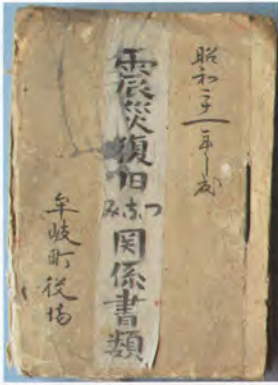 昭和二十一年度
震災復旧
つなみ
関係書類
牟岐町役場